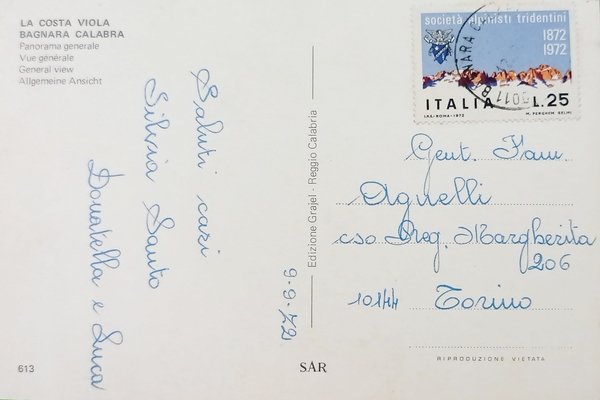 LA COSTA VIOLA
BAGNARA CALABRA
Panorama generale
Vue générale
General view
Allgemeine Ansicht
Saluti cari
Silvia Santo
Donatella e Luca
9-9-72
613
Edizione Grajel - Reggio Calabria
SAR
società alpinisti tridentini
1872
1972
ITALIA L.25
I.P.S.-ROMA-1972 M. PEREHEM SELMI
Gent. Fam.
Agnelli
cso Reg. Margherita
206
10144 Torino
RIPRODUZIONE VIETATA